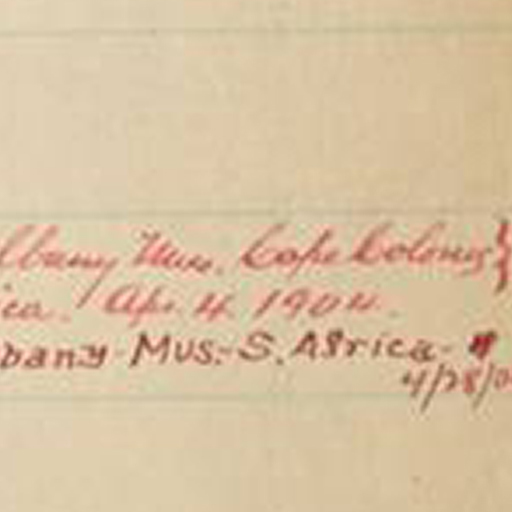 lbany Mus. Cape Colony}
ica. Apr. 4. 1904.
bany Mus.- S. Africa- "
4/28/0